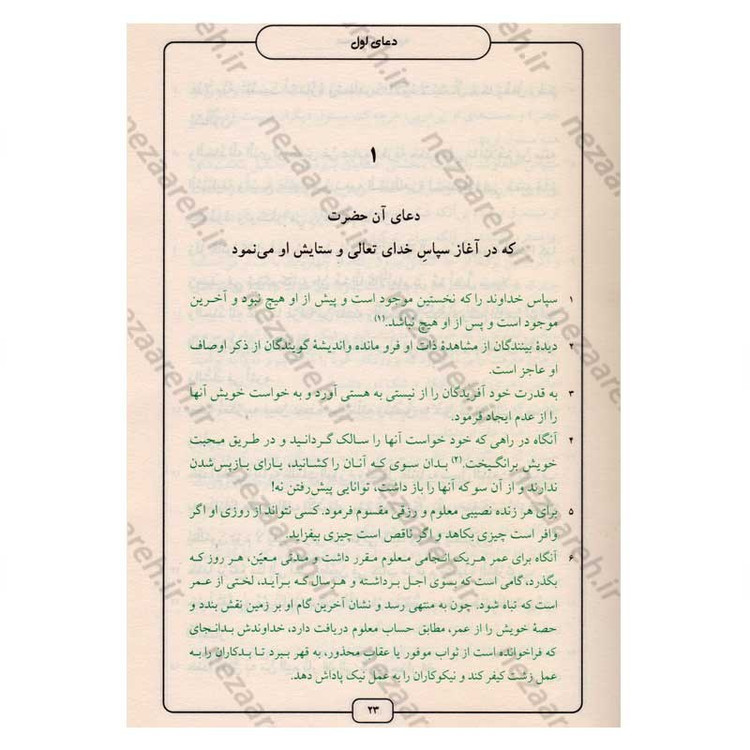 دعای اول
۱
دعای آن حضرت
که در آغاز سپاسِ خدای تعالی و ستایش او می‌نمود
۱ سپاس خداوند را که نخستین موجود است و پیش از او هیچ نبود و آخرین
موجود است و پس از او هیچ نباشد.(۱)
۲ دیدهٔ بینندگان از مشاهدهٔ ذات او فرو مانده واندیشهٔ گویندگان از ذکر اوصاف
او عاجز است.
۳ به قدرت خود آفریدگان را از نیستی به هستی آورد و به خواست خویش آنها
را از عدم ایجاد فرمود.
۴ آنگاه در راهی که خود خواست آنها را سالک گردانید و در طریق محبت
خویش برانگیخت.(۲) بدان سوی که آنان را کشانید، یارای بازپس‌شدن
ندارند و از آن سو که آنها را باز داشت، توانایی پیش‌رفتن نه!
۵ برای هر زنده نصیبی معلوم و رزقی مقسوم فرمود. کسی نتواند از روزی او اگر
وافر است چیزی بکاهد و اگر ناقص است چیزی بیفزاید.
۶ آنگاه برای عمر هریک انجامی معلوم مقرر داشت و مدتی معیّن، هر روز که
بگذرد، گامی است که بسوی اجل برداشته و هرسال که برآید، لختی از عمر
است که تباه شود. چون به منتهی رسد و نشان آخرین گام او بر زمین نقش بندد و
حصهٔ خویش را از عمر، مطابق حساب معلوم دریافت دارد، خداوندش بدانجای
که فراخوانده است از ثواب موفور یا عقاب محذور، به قهر ببرد تا بدکاران را به
عمل زشت کیفر کند و نیکوکاران را به عمل نیک پاداش دهد.
۲۳
nezaareh.ir
nezaareh.ir
nezaareh.ir
nezaareh.ir
nezaareh.ir
nezaareh.ir
nezaareh.ir